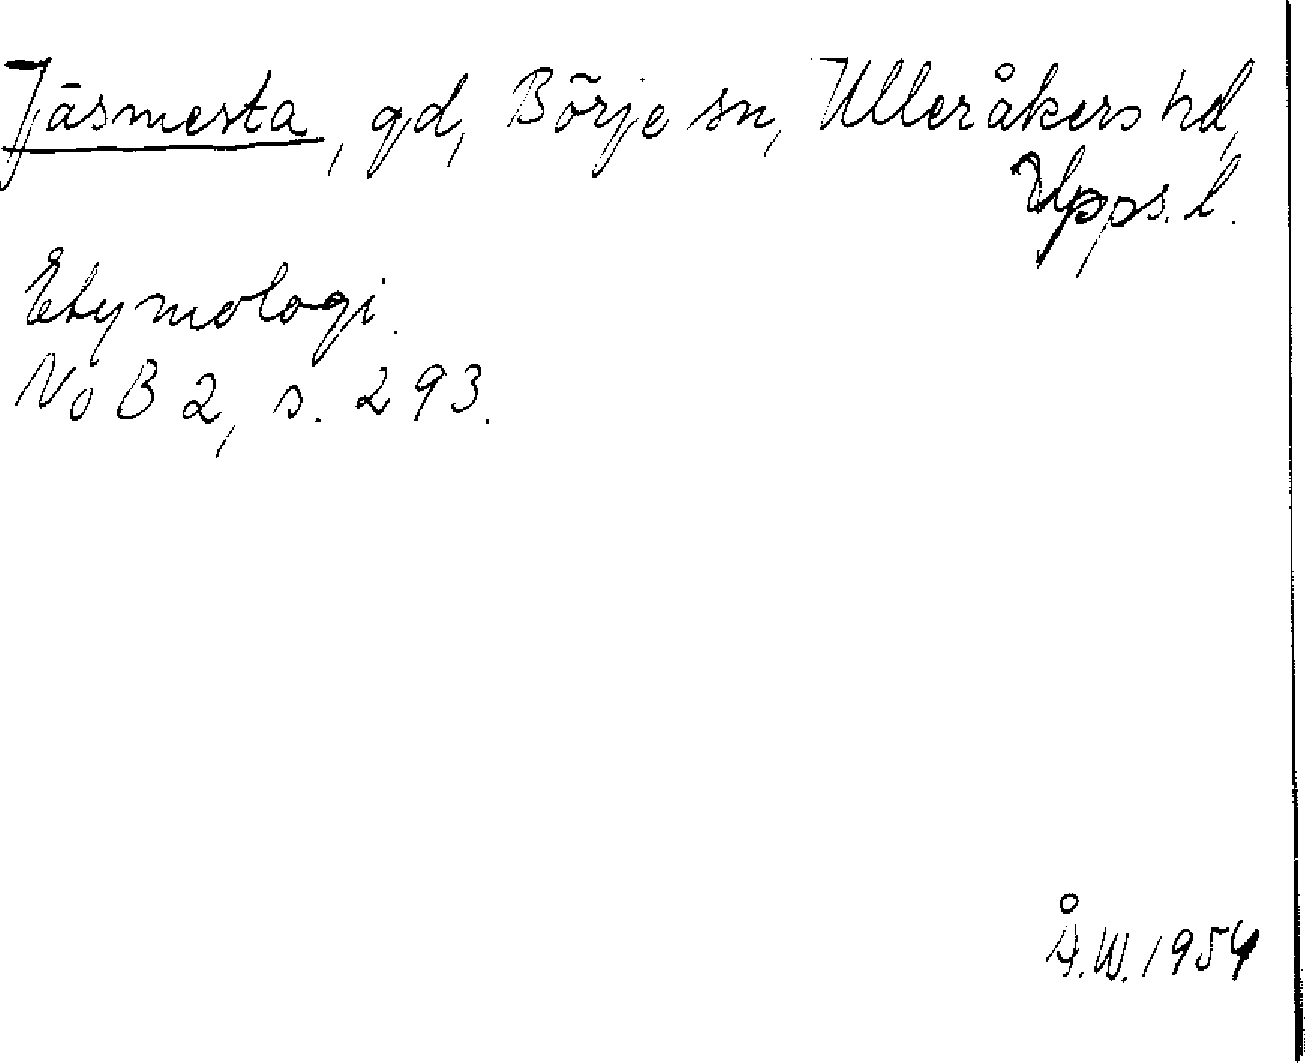 Jäsmesta, gd, Börje sn, Ulleråkers hd,
Upps. l.
Etymologi.
NoB 2, s. 293.
Å.W. 1954